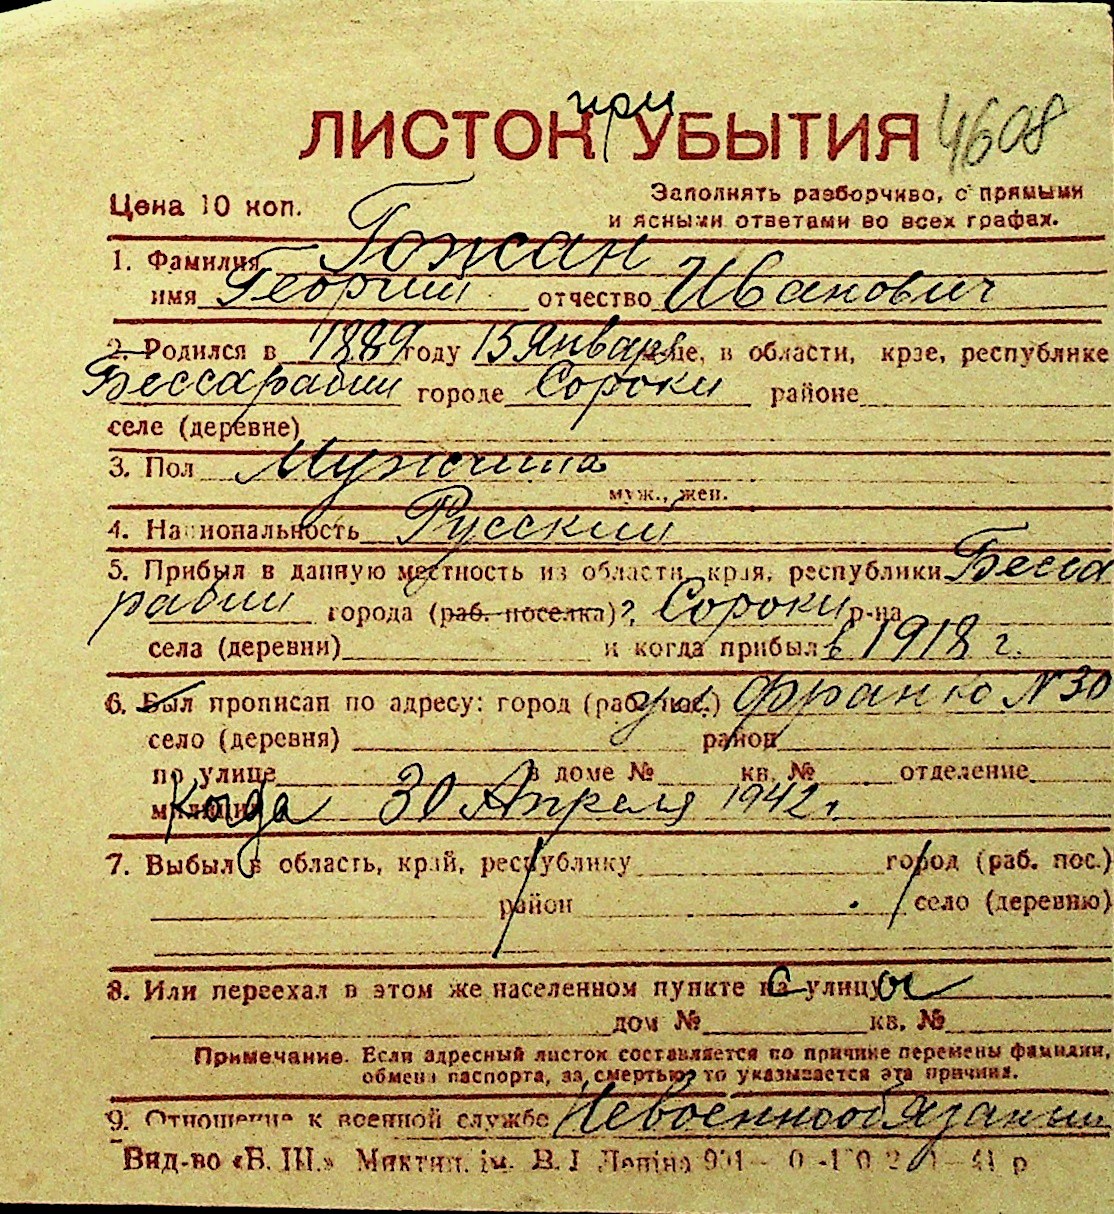 при
ЛИСТОК УБЫТИЯ 4608
Цена 10 коп. Заполнять разборчиво, с прямыми
и ясными ответами во всех графах.
1. Фамилия Гожан
имя Георгий отчество Иванович
2. Родился в 1889 году 15 Января м-це, в области, крае, республике
Бессарабии городе Сороки районе
селе (деревне)
3. Пол Мужчина
муж., жен.
4. Национальность Русский
5. Прибыл в данную местность из области, края, республики Бесса
рабии города (раб. поселка)? Сороки р-на
села (деревни) и когда прибыл в 1918 г.
6. Был прописан по адресу: город (раб. пос.) ул Франко № 30
село (деревня) район
по улице в доме № кв. № отделение
милиции Когда 30 Апреля 1942 г.
7. Выбыл в область, край, республику город (раб. пос.)
район село (деревню)
8. Или переехал в этом же населенном пункте на улицу
дом № кв. №
Примечание. Если адресный листок составляется по причине перемены фамилии,
обмена паспорта, за смертью, то указывается эта причина.
9. Отношение к военной службе Невоеннообязаный
Вид-во «В. Ш.» Миктип. ім. В. І Леніна